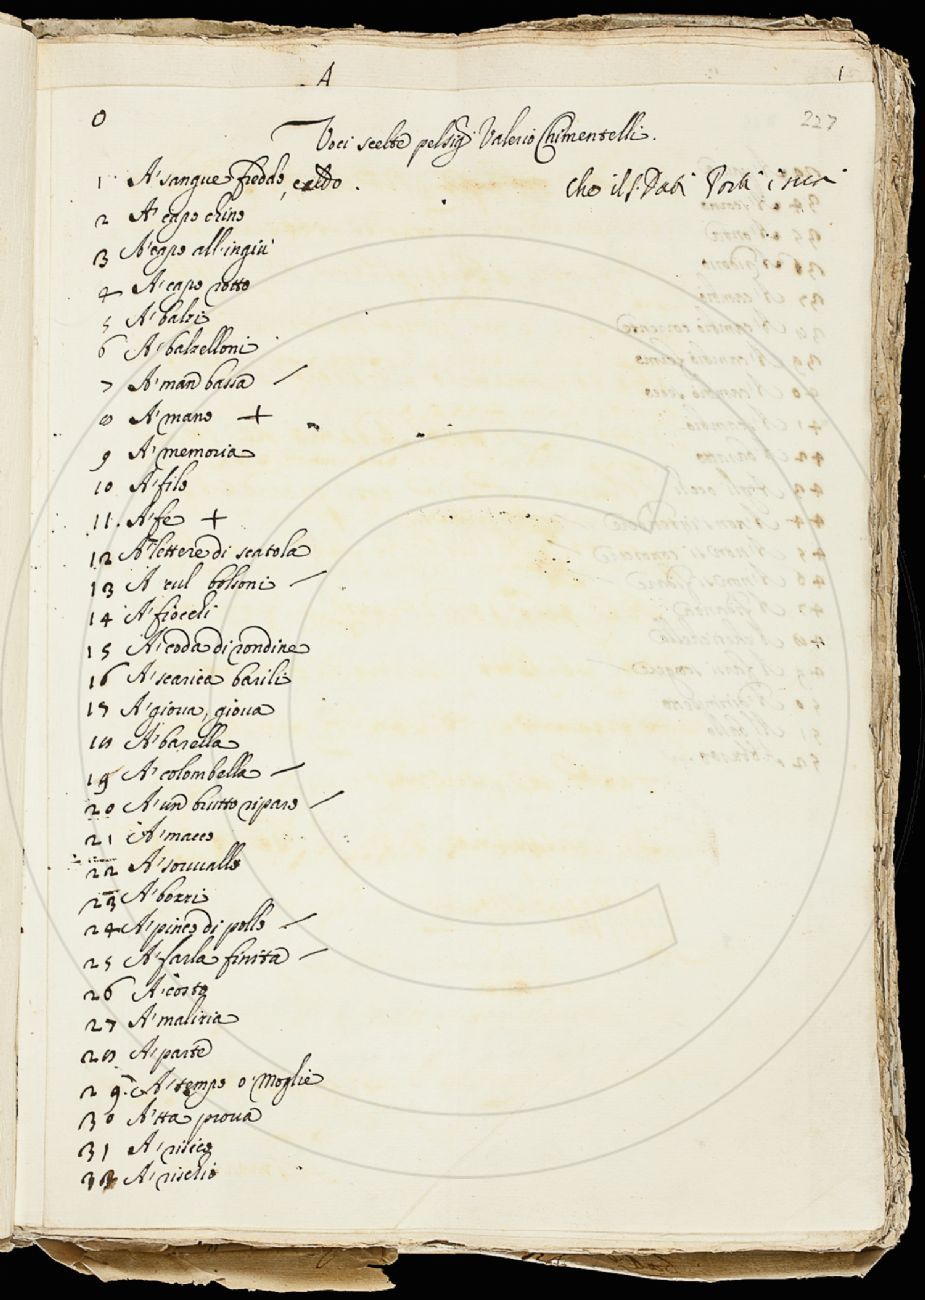 A 1
0 227
Voci scelte pel Sig.r Valerio Chimentelli.
1 A' sangue freddo, caldo.
che il S. Dati
2 A' capo chino
3 A' capo all'ingiù
4 A' capo rotto
5 A' balzi
6 A' balzelloni
7 A' man bassa —
8 A' mano +
9 A' memoria
10 A' filo
11. A' fe +
12 A' lettere di scatola
13 A cul bolsoni —
14 A' fiocchi
15 A' coda di rondine
16 A' scarica barili
17 A' giova, giova
18 A' barella
19 A' colombella —
20 A' un brutto riparo —
21 A' macco
22 A' sovvallo
23 A' borri
24 A' pirico di pollo —
25 A' farla finita —
26 A' costo
27 A' malizia
28 A' parte
29. A' tempo o' moglie
30 A' tta prova
31 A' risico
32 A' rischio